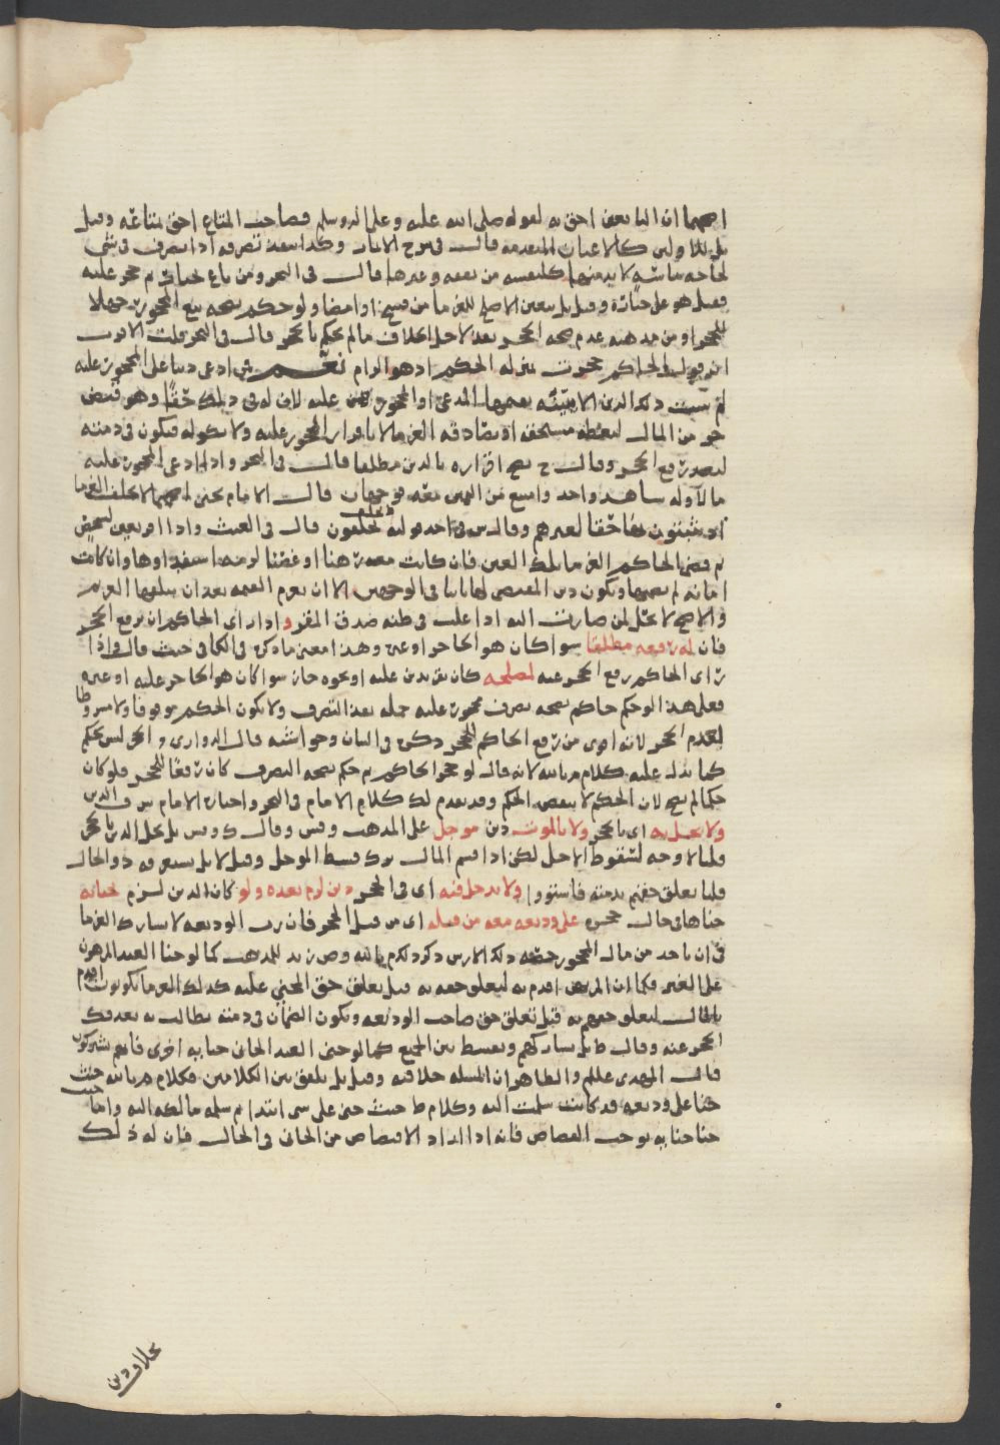 اصحهما ان البايعين احق به لقوله صلى الله عليه وعلى اله وسلم فصاحب المتاع احق بمتاعه وقيل
كالاعيان المتقدمه قال في شرح الاثمار وكذا بعد تصرفه اذا تصرف في شي
لحاجه ماسه لا بد منها كنفسه من نفقه وغيرها قال في البحر ومن باع بخيار ثم حجر عليه
فقيل هو على خياره وقيل بل يتعين الاصلح للغرما من فسخ او امضا ولو حكم بصحه بيع المحجور جهلا
للحجر او من مذهبه عدم صحه الحجر نفذ لاجل الخلاف ما لم يحكم بالحجر قال في البحر قلت الاقرب
ان قول الحاكم حجرت بمنزله الحكم اذ هو الزام نعم ادعى دينا على المحجور عليه
لم يثبت ذلك الدين الا ببينه المدعي او المحجور عليه لان له في ذلك حقا وهو قبض
جزو من المال مستحقه او تصادقه الغرما لا باقرار المحجور عليه ولا نكوله فيكون في ذمته
رفع الحجر وقال ح يصح اقراره بالدين مطلقا قال في البحر واذا ادعى المحجور عليه
مالا وله شاهد واحد وامتنع من اليمين معه فوجهان قال الامام يحيى اصحهما لا يحلف الغرما
حقا لغيرهم وقال س في احد قوليه يحلفون قال في الغيث واذا اقر بعين لشخص
ثم قضى الحاكم الغرما بتلك العين فان كانت معه رهنا او غصبا لزمه استفداوها وان كانت
امانه لم يضمنها ويكون دين المقتضي لها باقيا في الوجهين الا ان يغرم القيمه بعد ان يتلفها الغريم
والاصح لا تحل لمن صارت اليه اذا غلب في ظنه صدق المقر واذا راى الحاكم ان يرفع الحجر
فان له رفعه مطلقا سوا كان هو الحاجر او غيره وهذا معنى ما ذكره في الكافي حيث قال واذا
راى الحاكم رفع الحجر عنه لمصلحه كان يزيد دين عليه او نحوه جاز سوا كان هو الحاجر عليه او غيره
فعلى هذا لو حكم حاكم بصحه تصرف محجور عليه جمله نفذ التصرف ولا يكون الحكم موقوفا ولا مشروطا
لعدم الحجر لانه اقوى من رفع الحاكم للحجر ذكره في البيان وحواشيه قال الدواري والحجر ليس بحكم
كما يدل عليه كلام م بالله لانه قال لو حجر الحاكم ثم حكم بصحه التصرف كان رفعا للحجر فلو كان
حكما لم يصح لان الحكم لا ينقض الحكم وقد تقدم لك كلام الامام في البحر واختاره الامام شرف الدين
ولا يحل به اى بالحجر ولا بالموت دين موجل على المذهب وقش وقال ك وبس بل يحل الدين بالحجر
قلنا لا وجه لسقوط الاجل لكن اذا قسم المال ترك قسط الموجل وقيل لا بل يستغرقه ذو الحال
قلنا تعلق حقهم بذمته فاستووا ولا يدخل فيه اى في الحجر دين لزم بعده ولو كان الدين لزم بجنايه
جناها في حال حجره على وديعه معه من قبله اى من قبل الحجر فان رب الوديعه لا يشارك الغرما
في ان ياخذ من مال المحجور حصه ذلك الارش ذكر ذلك م بالله وص زيد للمذهب كما لو جنا العبد المرهون
على الغير فكما ان المرتهن اقدم به لتعلق حقه به قبل تعلق حق المجني عليه كذلك الغرما يكونون اقدم
بالمال لتعلق حقهم به قبل تعلق حق صاحب الوديعه ويكون الضمان في ذمته يطالب به بعد فك
الحجر عنه وقال ط بل يشاركهم ويقسط بين الجميع كما لو جنى العبد الجاني جنايه اخرى فانهم يشتركون
قال المهدي عللم والظاهر ان المسله خلافيه وقيل بل يلفق بين الكلامين فكلام م بالله حيث
جنا على وديعه قد كانت سلمت اليه وكلام ط حيث جنى على شي ابتدا ثم سلمه مالكه اليه واما حيث
جنا جنايه توجب القصاص فانه اذا اراد الاقتصاص من الجاني في الحال فان له ذلك
بخلاف دين